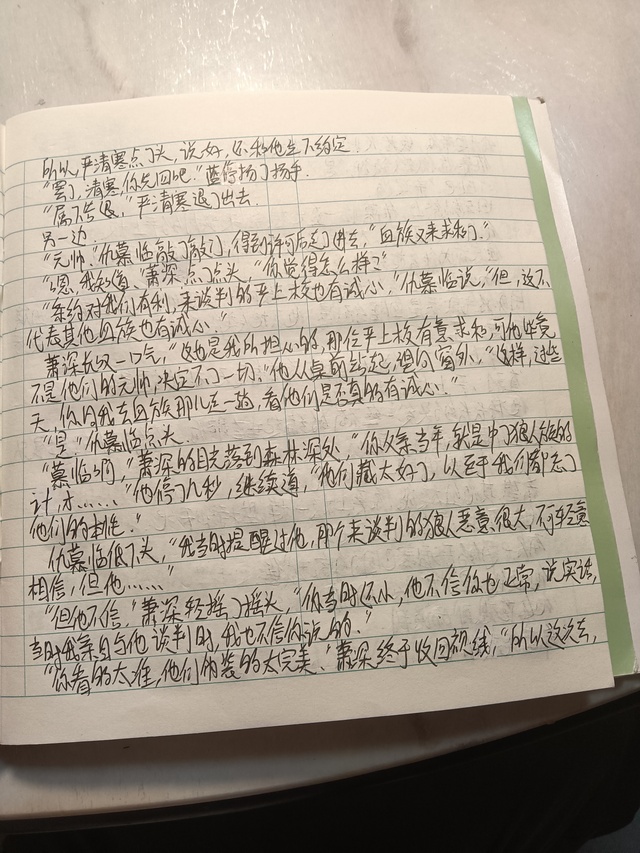 所以，严清寒点了头，说好，还和他生下约定.
"罢了，清寒，你先回吧."蓝停扬了扬手.
"属下告退，"严清寒退了出去.
另一边
"元帅."仇慕临敲了敲门，得到许可后走了进去，"血族又来求和了."
"嗯，我知道."萧深点了点头，"你觉得怎么样？"
"条约对我们有利，来谈判的平上校也有诚心，"仇慕临说，"但，这不
代表其他血族也有诚心."
萧深长叹一口气，"这也是我所担心的，那位平上校有意求和，可他毕竟
不是他们的元帅，决定不了一切."他从桌前站起，望向窗外，"这样，过些
天，你同我去血族那儿走一趟，看他们是否真的有诚心."
"是."仇慕临点头.
"慕临啊，"萧深的目光落到森林深处，"你父亲当年，就是中了狼人族的
计，才……"他停了几秒，继续道，"他们藏太好了，以至于我们都忘了
他们的本性."
仇慕临低下头，"我当时提醒过他，那个来谈判的狼人恶意很大，不可轻意
相信，但他……"
"但他不信，"萧深轻摇了摇头，"你当时还小，他不信你也正常，说实话，
当时我亲自与他谈判时，我也不信你说的."
"你看的太准，他们伪装的太完美."萧深终于收回视线，"所以这次去，